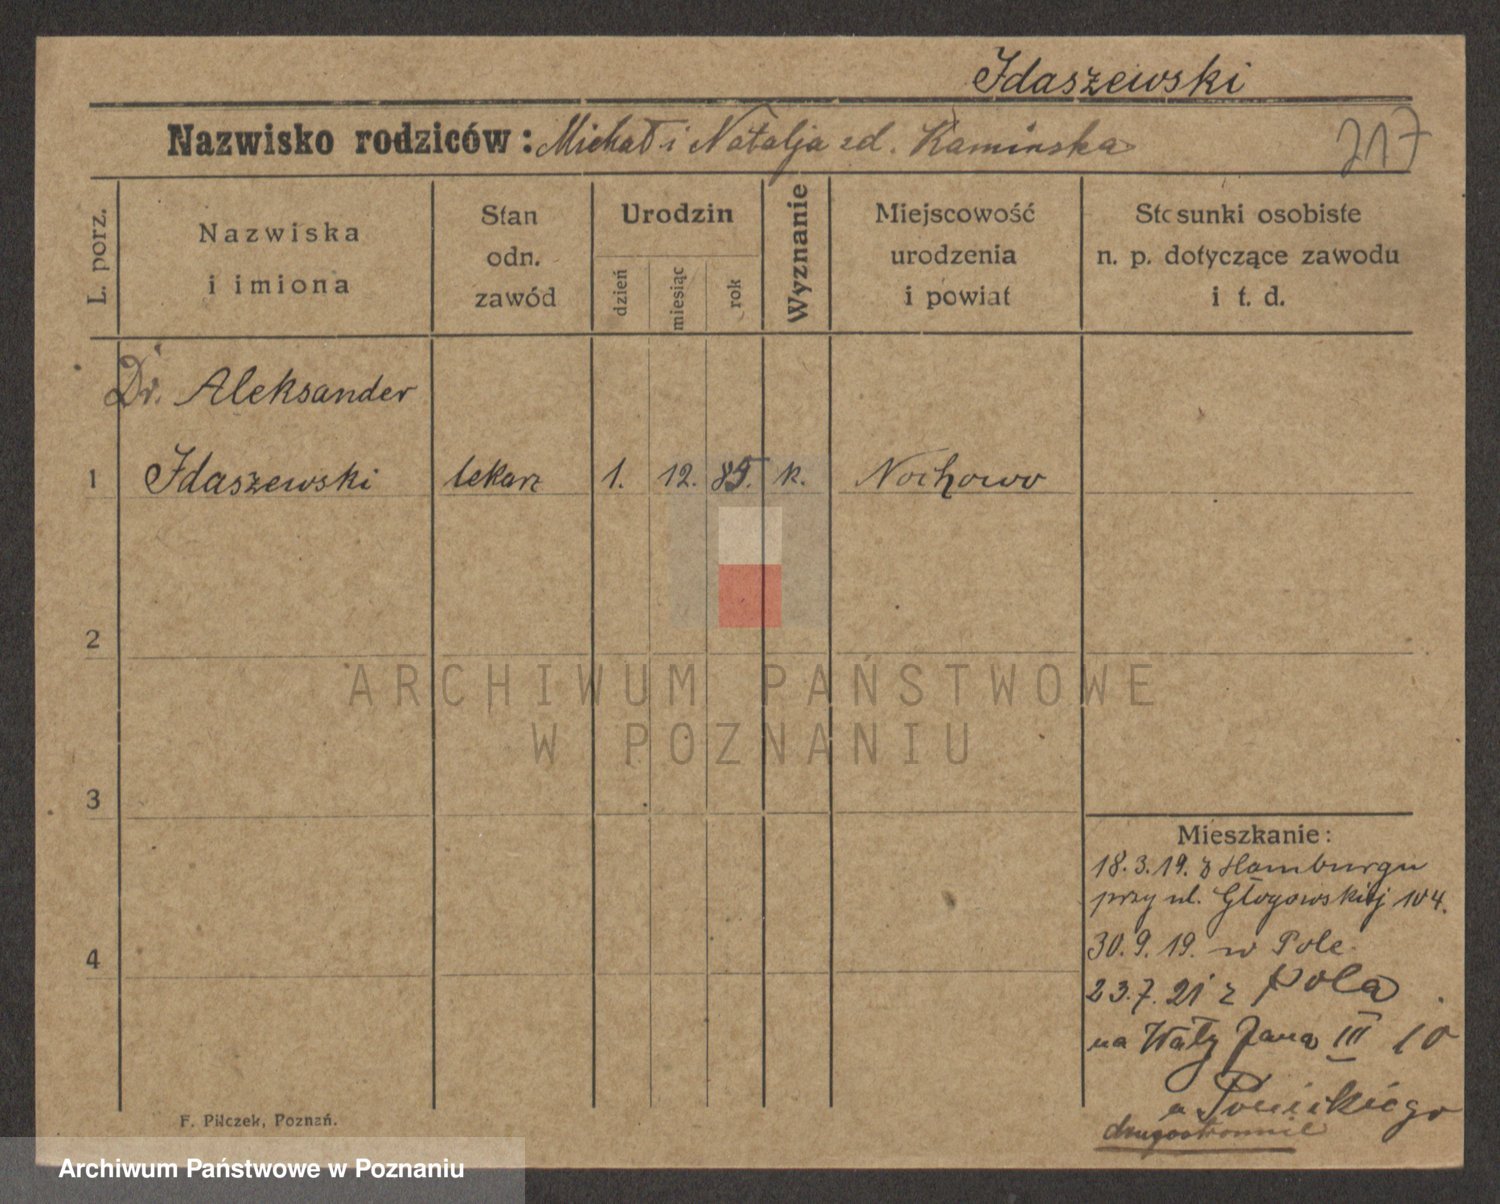 Idaszewski
Nazwisko rodziców: Michał i Natalja zd. Kamińska
217
L. porz.
Nazwiska
i imiona
Stan
odn.
zawód
Urodzin
dzień
miesiąc
rok
Wyznanie
Miejscowość
urodzenia
i powiat
Stosunki osobiste
n. p. dotyczące zawodu
i t. d.
Dr. Aleksander
1 Idaszewski lekarz 1. 12. 85. k. Nochowo
2
3
4
ARCHIWUM PAŃSTWOWE
W POZNANIU
Mieszkanie:
18.3.19. z Hamburgu
przy ul. Głogowskiej 104.
30.9.19. w Pole
23.7.21 z Pola
na Wały Jana III 10
u
drugostronnie
F. Pilczek, Poznań.
Archiwum Państwowe w Poznaniu